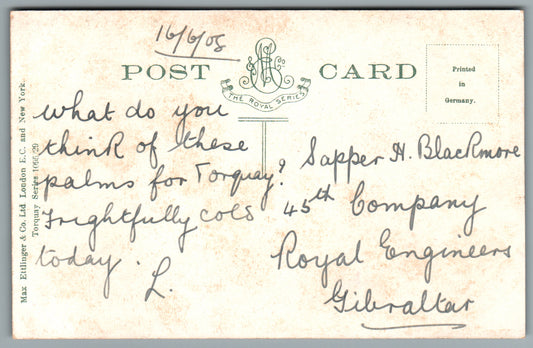 16/6/08
POST CARD
THE ROYAL SERIES
Printed
in
Germany.
Max Ettlinger & Co. Ltd London E.C. and New York.
Torquay Series
what do you
think of these
palms for Torquay?
Frightfully cold
today.
L.
Sapper H. Blackmore
45th Company
Royal Engineers
Gibraltar